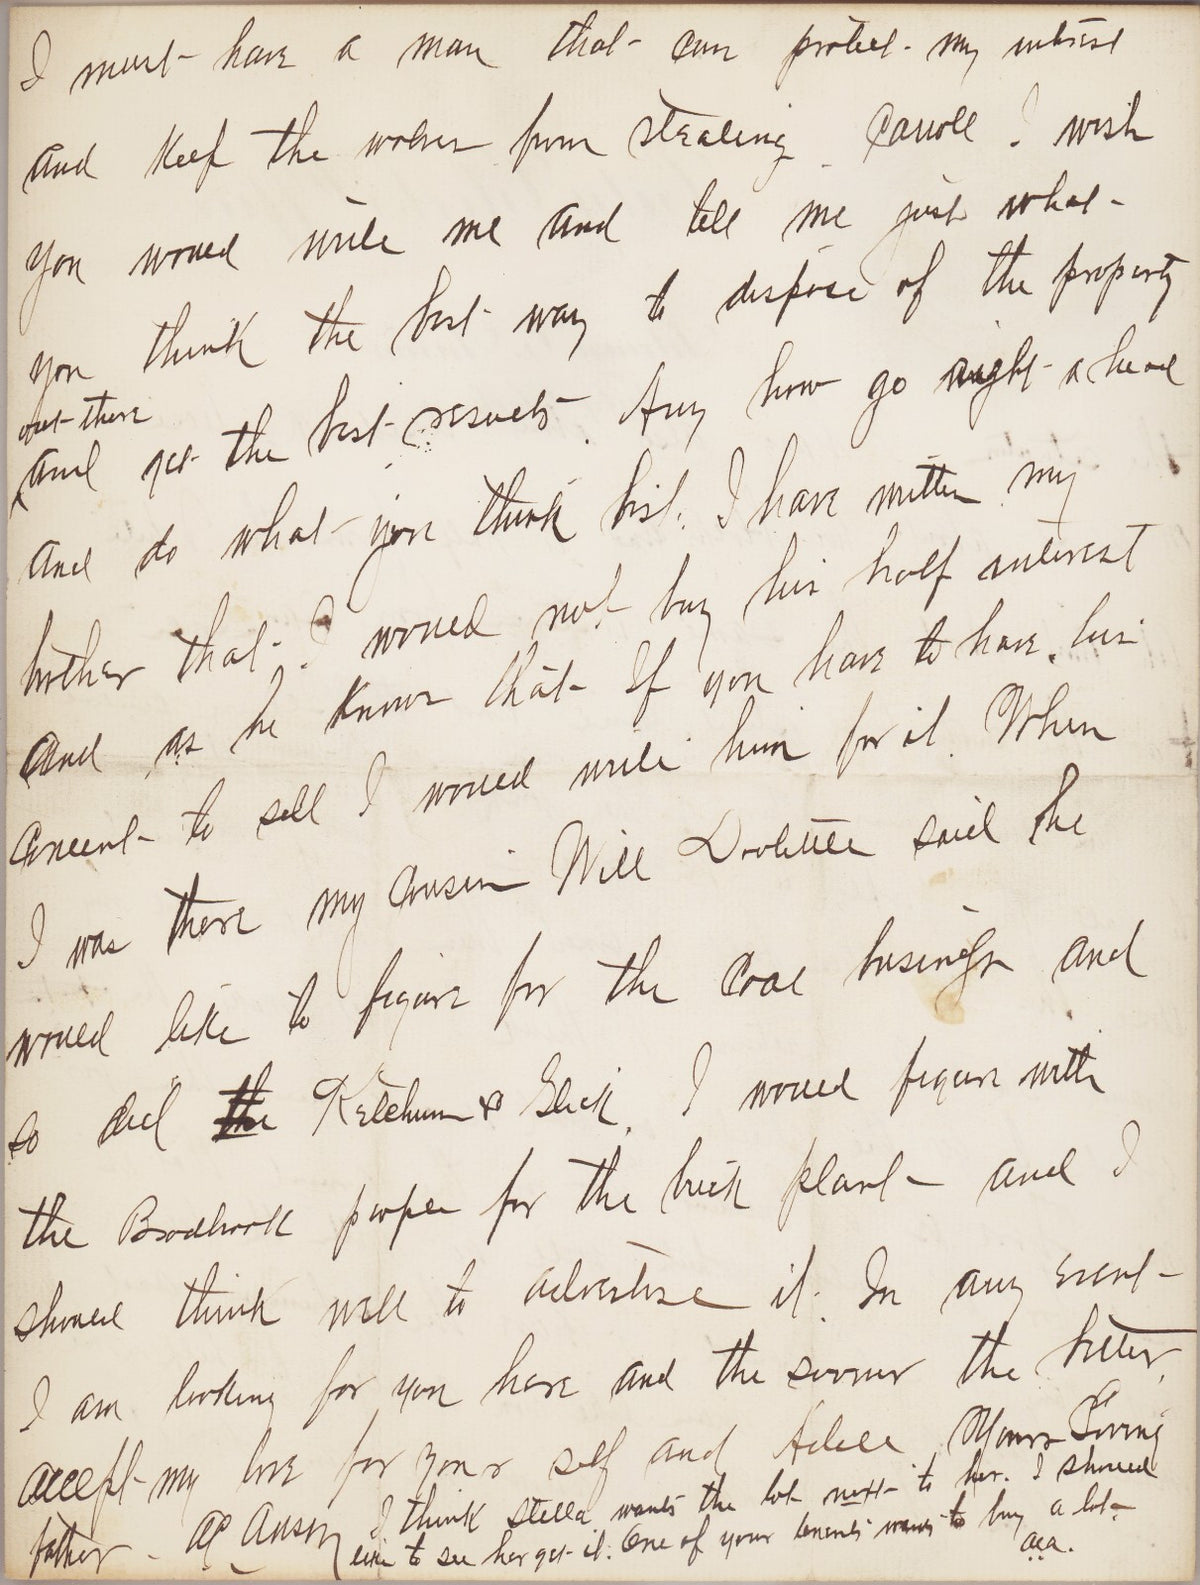 I must have a man that can protect my intrest
and keep the wolves from stealing. Carroll I wish
you would write me and tell me just what
you think the best way to dispose of the property
out there
and get the best results. Any how go right a head
and do what you think best. I have written my
brother that I would not buy his half interest
and as he knows that If you have to have his
concent to sell I would write him for it. When
I was there my cousin Will Doolittle said he
would like to figure for the coal business and
so did the Ketchum & Glick. I would figure with
the people for the brick plant and I
should think well to advertise it. In any event
I am looking for you here and the sooner the better.
accept my love for your self and Adele Yours Loving
father. AC Anson I think Stella wants the lot next to her. I should
like to see her get it. One of your tenants wants to buy a lot
aca.